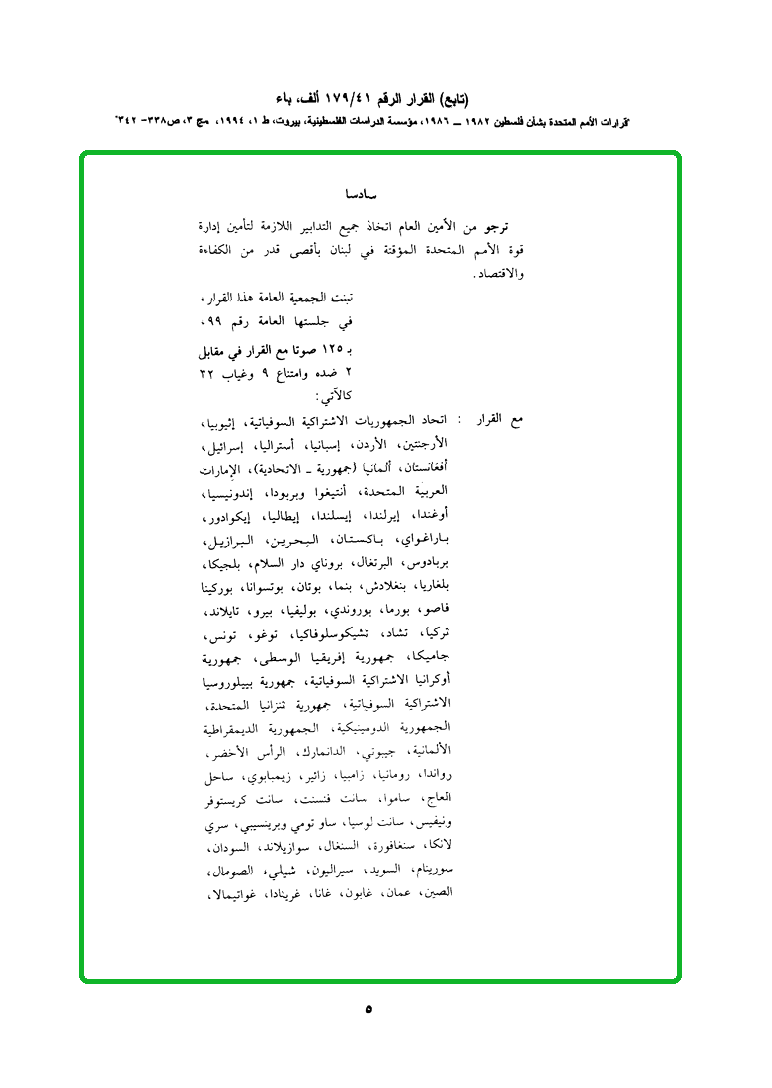 (تابع) القرار الرقم ١٧٩/٤١ ألف، باء
"قرارات الأمم المتحدة بشأن فلسطين ١٩٨٢ ــ ١٩٨٦، مؤسسة الدراسات الفلسطينية، بيروت، ط ١، ١٩٩٤، مج ٣، ص٣٣٨- ٣٤٢"
سادسا
ترجو من الأمين العام اتخاذ جميع التدابير اللازمة لتأمين إدارة
قوة الأمم المتحدة المؤقتة في لبنان بأقصى قدر من الكفاءة
والاقتصاد.
تبنت الجمعية العامة هذا القرار،
في جلستها العامة رقم ٩٩،
بـ ١٢٥ صوتا مع القرار في مقابل
٢ ضده وامتناع ٩ وغياب ٢٢
كالآتي:
مع القرار : اتحاد الجمهوريات الاشتراكية السوفياتية، إثيوبيا،
الأرجنتين، الأردن، إسبانيا، أستراليا، إسرائيل،
أفغانستان، ألمانيا (جمهورية ـ الاتحادية)، الإمارات
العربية المتحدة، أنتيغوا وبربودا، إندونيسيا،
أوغندا، إيرلندا، إيسلندا، إيطاليا، إيكوادور،
باراغواي، باكستان، البحرين، البرازيل،
بربادوس، البرتغال، بروناي دار السلام، بلجيكا،
بلغاريا، بنغلادش، بنما، بوتان، بوتسوانا، بوركينا
فاصو، بورما، بوروندي، بوليفيا، بيرو، تايلاند،
تركيا، تشاد، تشيكوسلوفاكيا، توغو، تونس،
جاميكا، جمهورية إفريقيا الوسطى، جمهورية
أوكرانيا الاشتراكية السوفياتية، جمهورية بييلوروسيا
الاشتراكية السوفياتية، جمهورية تنزانيا المتحدة،
الجمهورية الدومينيكية، الجمهورية الديمقراطية
الألمانية، جيبوتي، الدانمارك، الرأس الأخضر،
رواندا، رومانيا، زامبيا، زائير، زيمبابوي، ساحل
العاج، ساموا، سانت فنسنت، سانت كريستوفر
ونيفيس، سانت لوسيا، ساو تومي وبرينسيبي، سري
لانكا، سنغافورة، السنغال، سوازيلاند، السودان،
سورينام، السويد، سيراليون، شيلي، الصومال،
الصين، عمان، غابون، غانا، غرينادا، غواتيمالا،
٥